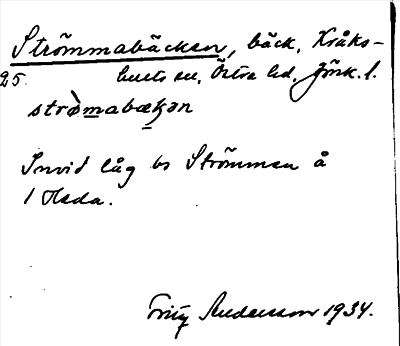 Strömmabäcken, bäck, Kråks-
25. hults sn, Östra hd, Jönk. l.
strø̀mabækən
Invid låg bs Strömmen å
1 Heda.
Fritz Andersson 1934.